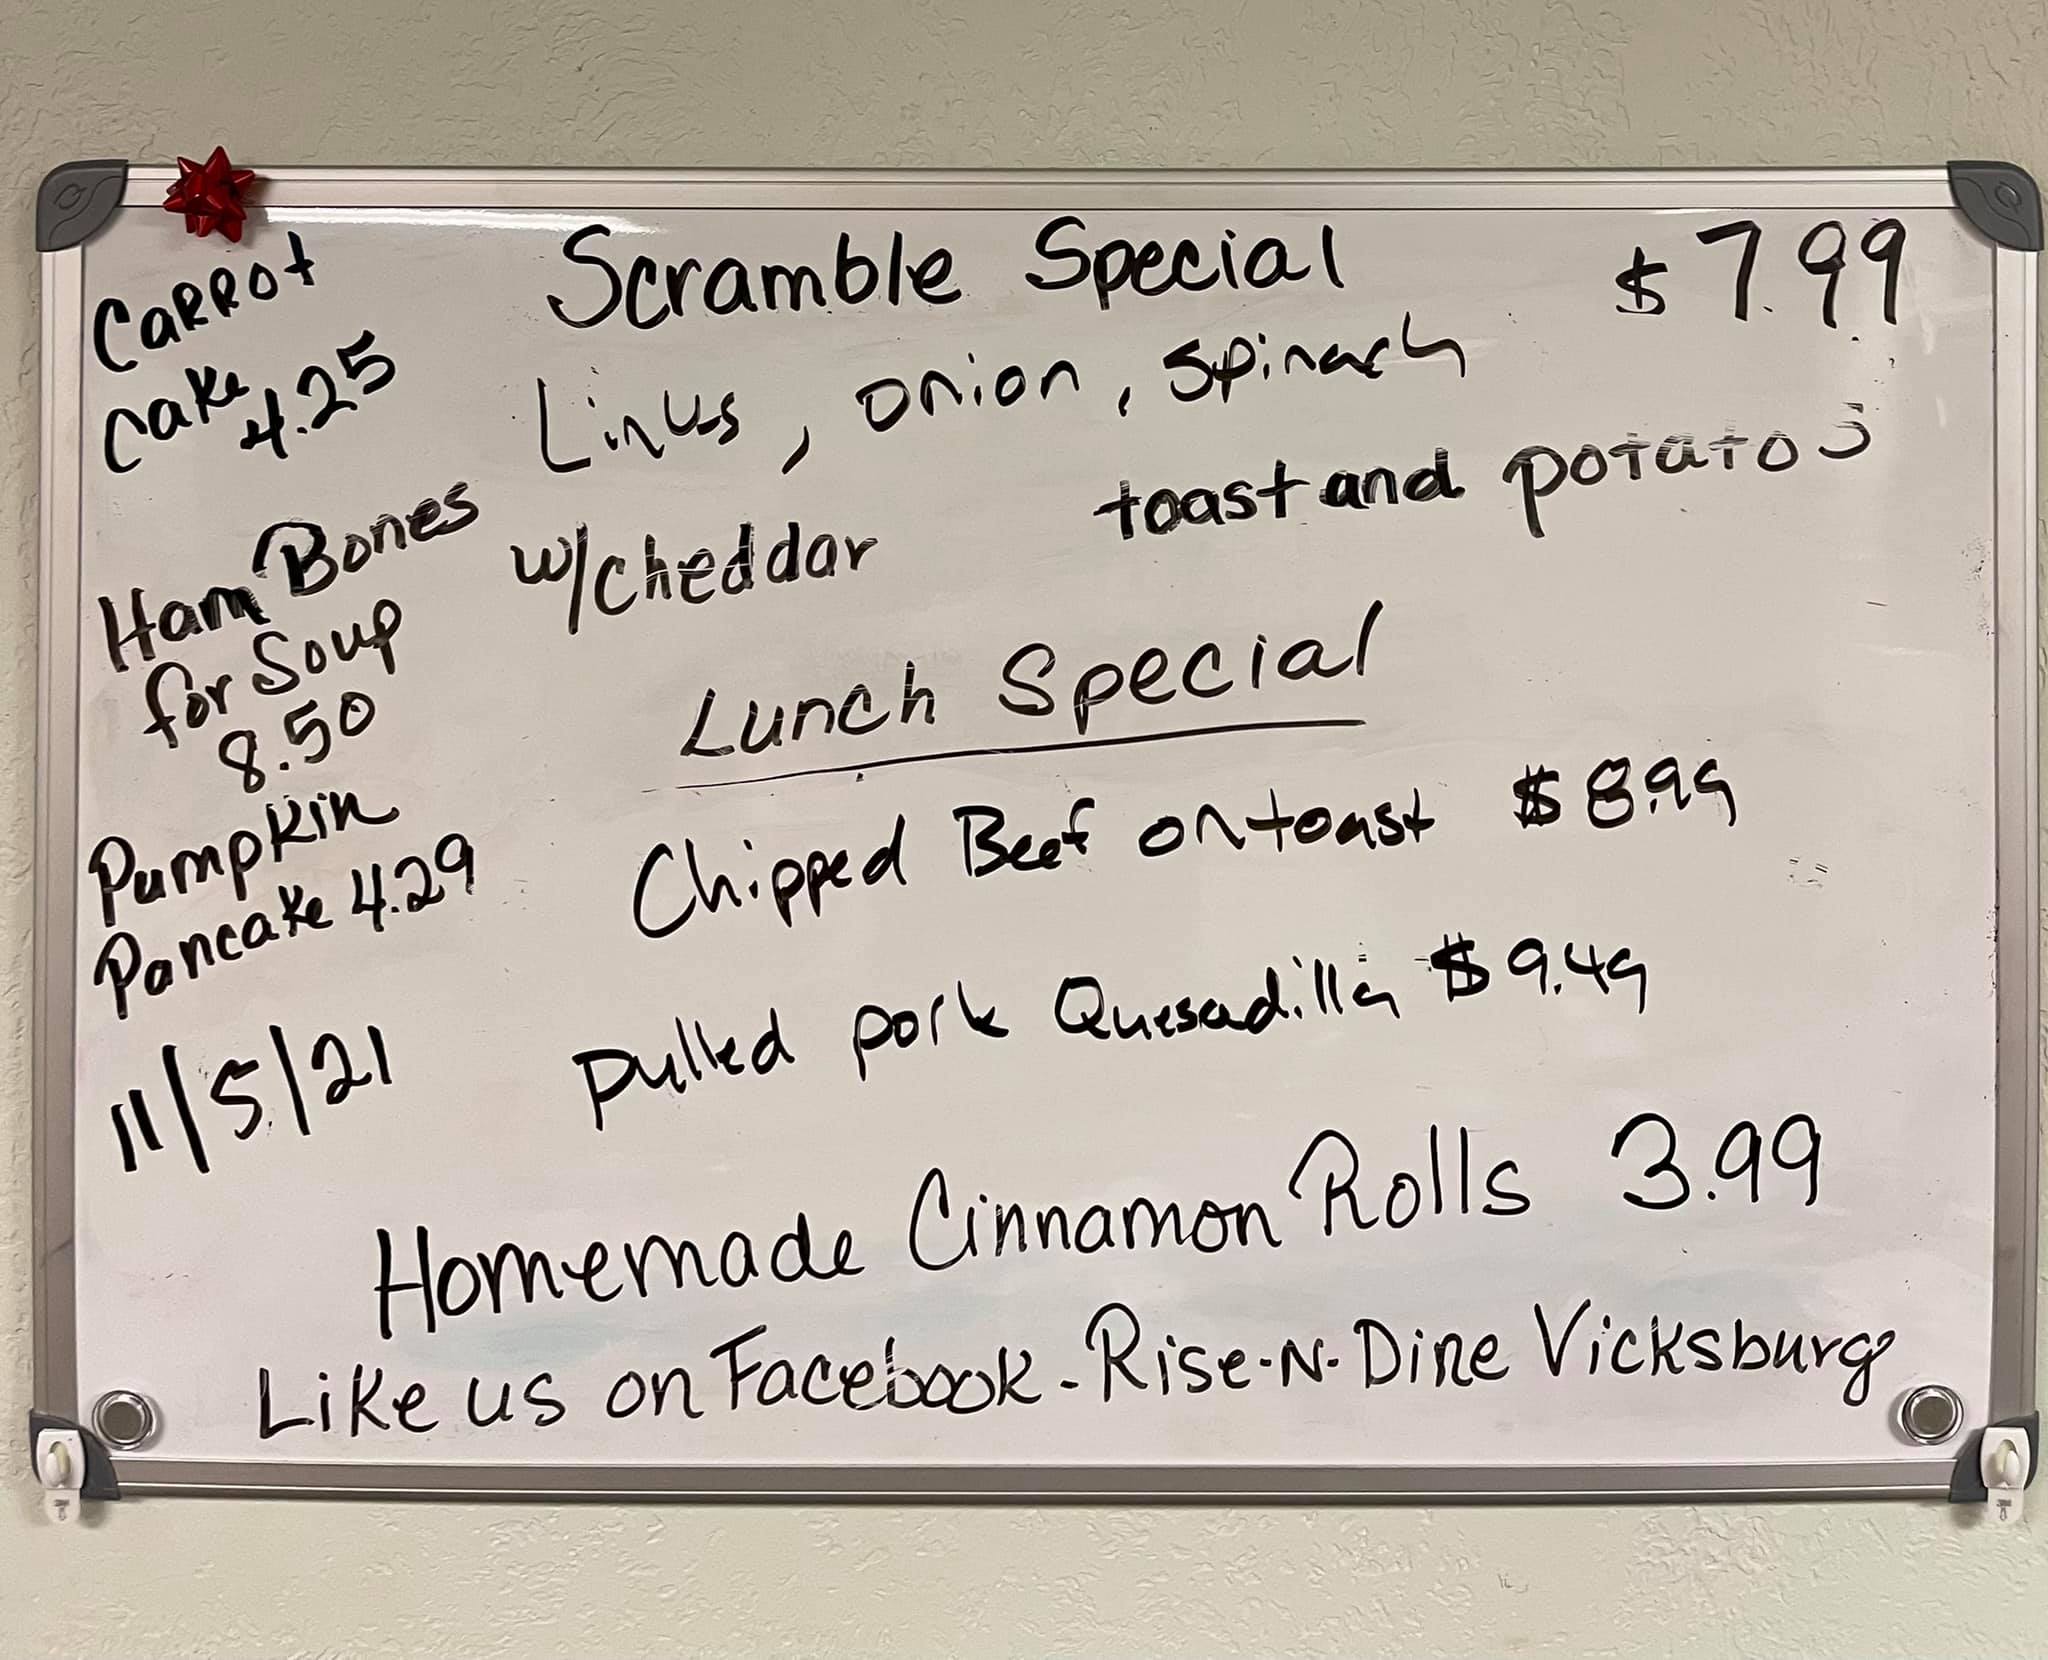 Carrot
Cake
4.25
Ham Bones
for Soup
8.50
Pumpkin
Pancake 4.29
11/5/21
Scramble Special $7.99
Linus, onion, spinach
w/cheddar toast and potatos
Lunch Special
Chipped Beef on toast $8.99
pulled pork Quesadilla $9.49
Homemade Cinnamon Rolls 3.99
Like us on Facebook - Rise-N-Dine Vicksburg